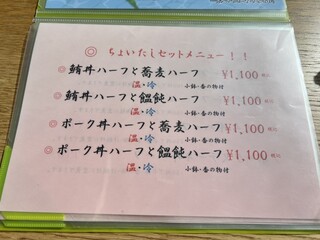 ◎ ちょいたしセットメニュー！！
◎鮪丼ハーフと蕎麦ハーフ ¥1,100税込
温・冷 小鉢・香の物付
◎鮪丼ハーフと饂飩ハーフ ¥1,100税込
温・冷 小鉢・香の物付
◎ポーク丼ハーフと蕎麦ハーフ ¥1,100税込
温・冷 小鉢・香の物付
◎ポーク丼ハーフと饂飩ハーフ ¥1,100税込
温・冷 小鉢・香の物付